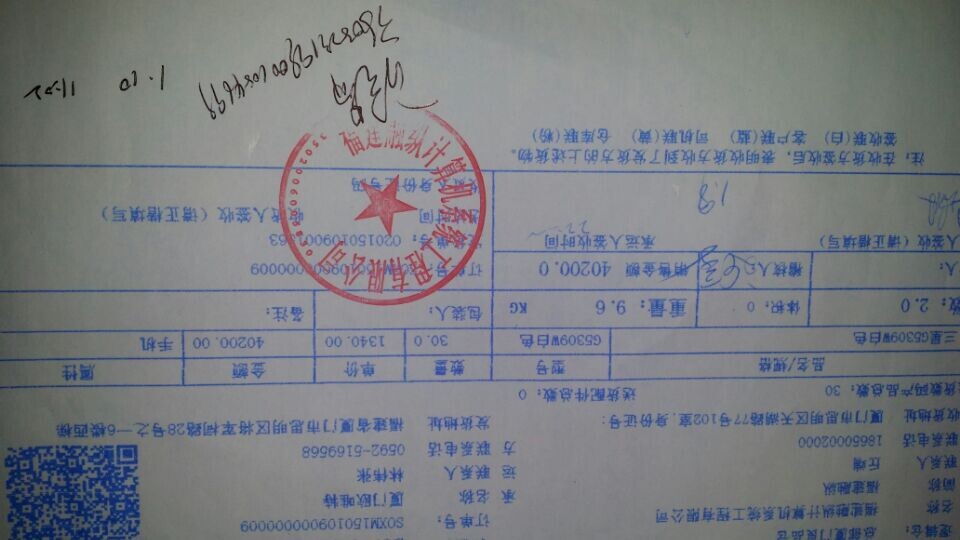 逻辑仓: 总部厦门良品仓
名称 福建融纵计算机系统工程有限公司
简称 福建融纵
联系人 丘晴
联系电话 18650002000
收货地址 厦门市思明区天湖路77号102室, 身份证号:
订单号: SOXM15010900000009
承运方 名称 厦门欧唯特
联系人 林伟张
联系电话 0592-5169568
发货地址 福建省厦门市思明区将军祠路28号之一6楼西梯
货数码产品总数: 30 送货配件总数: 0
品名/规格 型号 数量 单价 金额 属性
三星G5309W白色 G5309W白色 30.0 1340.00 40200.00 手机
数: 2.0 体积: 0 重量: 9.6 KG 包装人: 备注:
人: 稽核人: 销售金额 40200.0
订单号: SOXM15010900000009
发货单号: 020150109001363
人签收 (请正楷填写) 承运人签收时间
收货人签收 (请正楷填写)
签收时间
收货人身份证号码
1.9
注: 在收货方签收后, 表明收货方收到了发货方的上述货物。
签收联 (白) 客户联 (蓝) 司机联 (黄) 仓库联 (粉)
福建融纵计算机系统工程有限公司
1.10
11:02